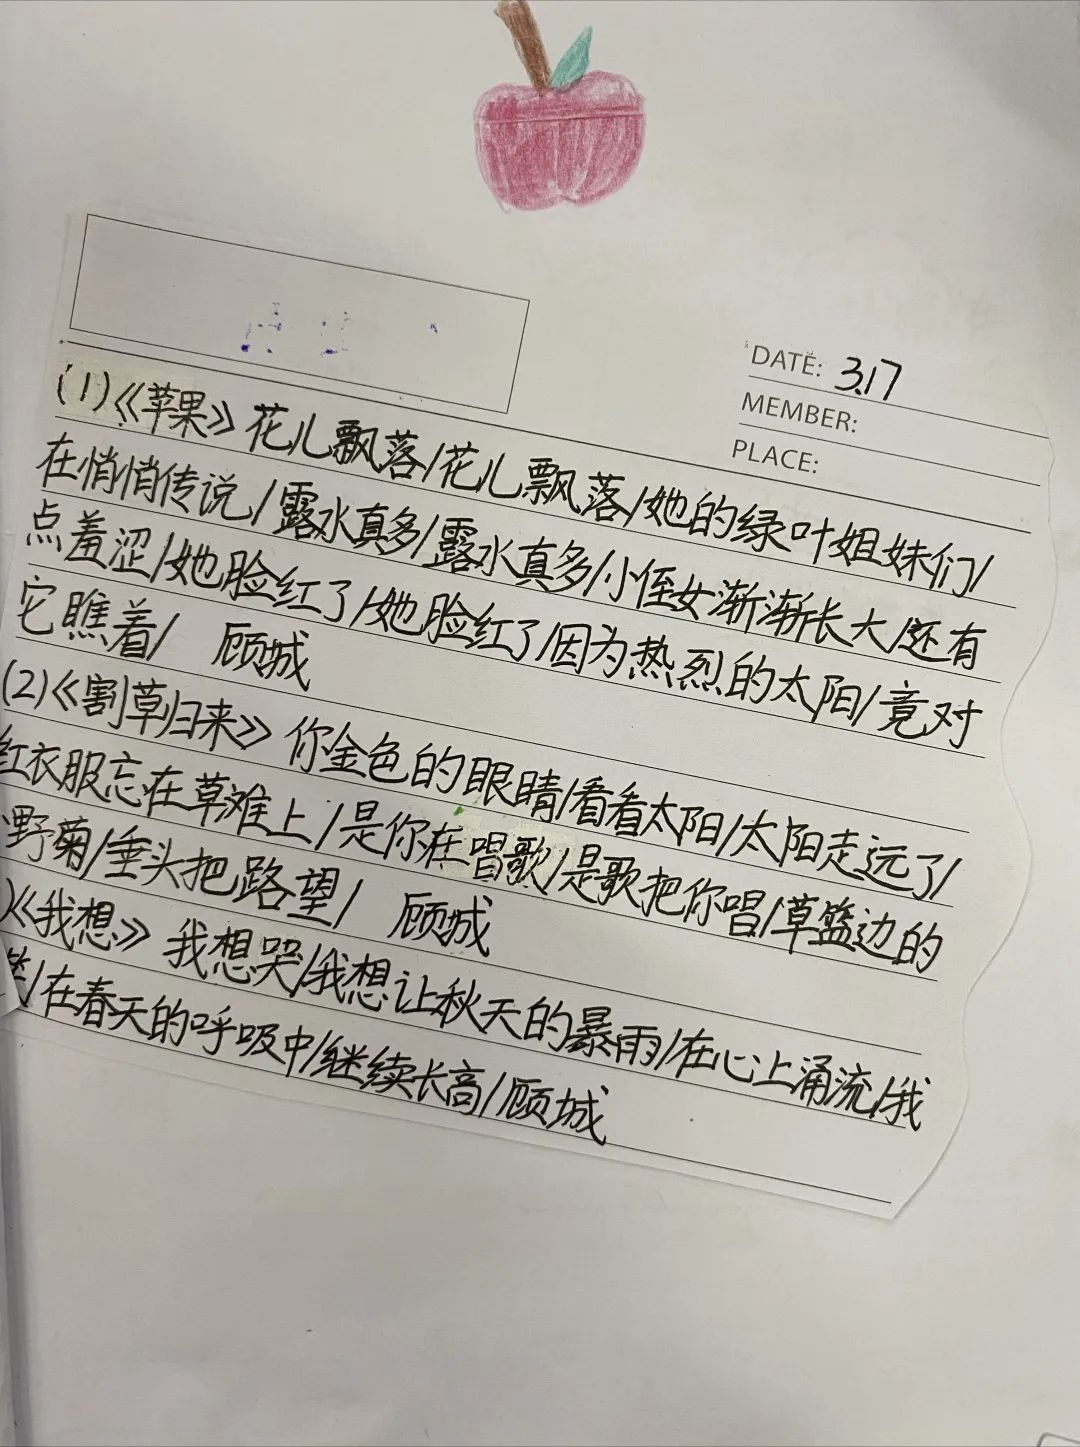 DATE: 3.17
MEMBER:
PLACE:
(1)《苹果》花儿飘落/花儿飘落/她的绿叶姐妹们/
在悄悄传说/露水真多/露水真多/小侄女渐渐长大/还有
点羞涩/她脸红了/她脸红了/因为热烈的太阳/竟对
它瞧着/ 顾城
(2)《割草归来》你金色的眼睛/看看太阳/太阳走远了/
红衣服忘在草滩上/是你在唱歌/是歌把你唱/草篮边的
野菊/垂头把路望/ 顾城
)《我想》我想哭/我想让秋天的暴雨/在心上涌流/我
/在春天的呼吸中/继续长高/顾城